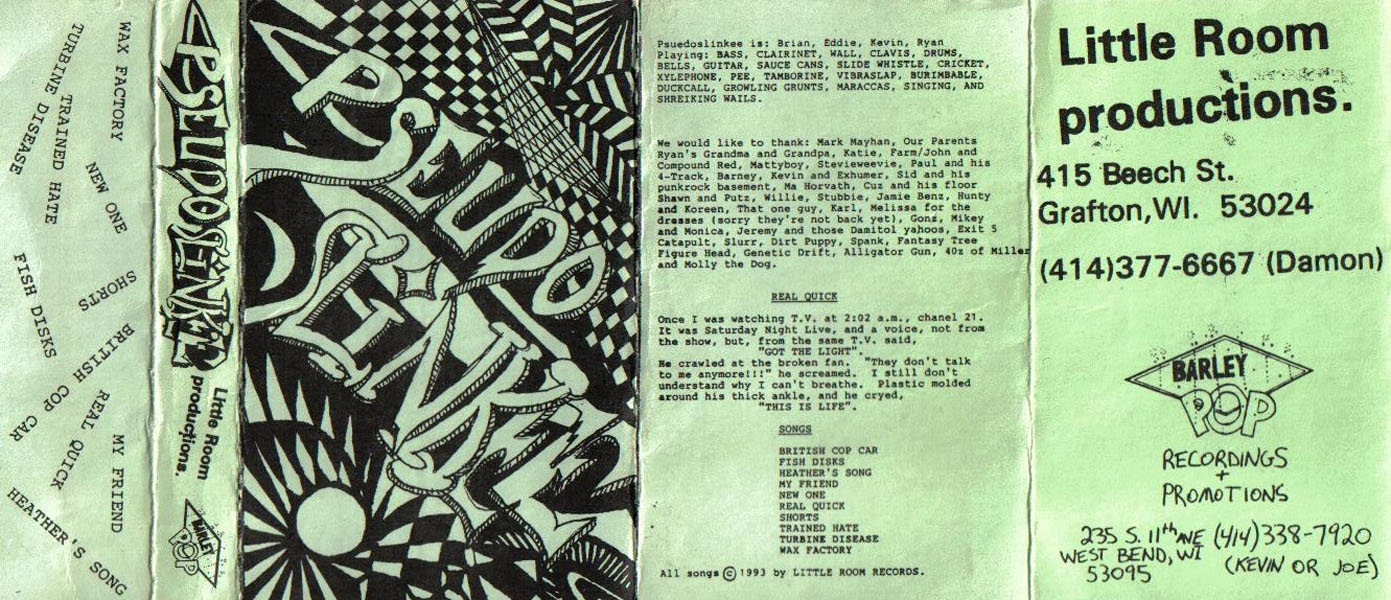 WAX FACTORY
TURBINE DISEASE
TRAINED HATE
NEW ONE
SHORTS
FISH DISKS
BRITISH COP CAR
REAL QUICK
MY FRIEND
HEATHER'S SONG
PSEUDOSLINKEE
Little Room
productions.
BARLEY
POP
PSEUDO
SLINKEE
Psuedoslinkee is: Brian, Eddie, Kevin, Ryan
Playing: BASS, CLAIRINET, WALL, CLAVIS, DRUMS,
BELLS, GUITAR, SAUCE CANS, SLIDE WHISTLE, CRICKET,
XYLEPHONE, PEE, TAMBORINE, VIBRASLAP, BURIMBABLE,
DUCKCALL, GROWLING GRUNTS, MARACCAS, SINGING, AND
SHREIKING WAILS.
We would like to thank: Mark Mayhan, Our Parents
Ryan's Grandma and Grandpa, Katie, Farm/John and
Compound Red, Mattyboy, Stevieweevie, Paul and his
4-Track, Barney, Kevin and Exhumer, Sid and his
punkrock basement, Ma Horvath, Cuz and his floor
Shawn and Putz, Willie, Stubbie, Jamie Benz, Hunty
and Koreen, That one guy, Karl, Melissa for the
dresses (sorry they're not back yet), Gonz, Mikey
and Monica, Jeremy and those Damitol yahoos, Exit 5
Catapult, Slurr, Dirt Puppy, Spank, Fantasy Tree
Figure Head, Genetic Drift, Alligator Gun, 40z of Miller
and Molly the Dog.
REAL QUICK
Once I was watching T.V. at 2:02 a.m., chanel 21.
It was Saturday Night Live, and a voice, not from
the show, but, from the same T.V. said,
"GOT THE LIGHT".
He crawled at the broken fan. "They don't talk
to me anymore!!!" he screamed. I still don't
understand why I can't breathe. Plastic molded
around his thick ankle, and he cryed,
"THIS IS LIFE".
SONGS
BRITISH COP CAR
FISH DISKS
HEATHER'S SONG
MY FRIEND
NEW ONE
REAL QUICK
SHORTS
TRAINED HATE
TURBINE DISEASE
WAX FACTORY
All songs © 1993 by LITTLE ROOM RECORDS.
Little Room
productions.
415 Beech St.
Grafton,WI. 53024
(414)377-6667 (Damon)
BARLEY
POP
RECORDINGS
+
PROMOTIONS
235 S. 11th AVE (414)338-7920
WEST BEND, WI (KEVIN OR JOE)
53095